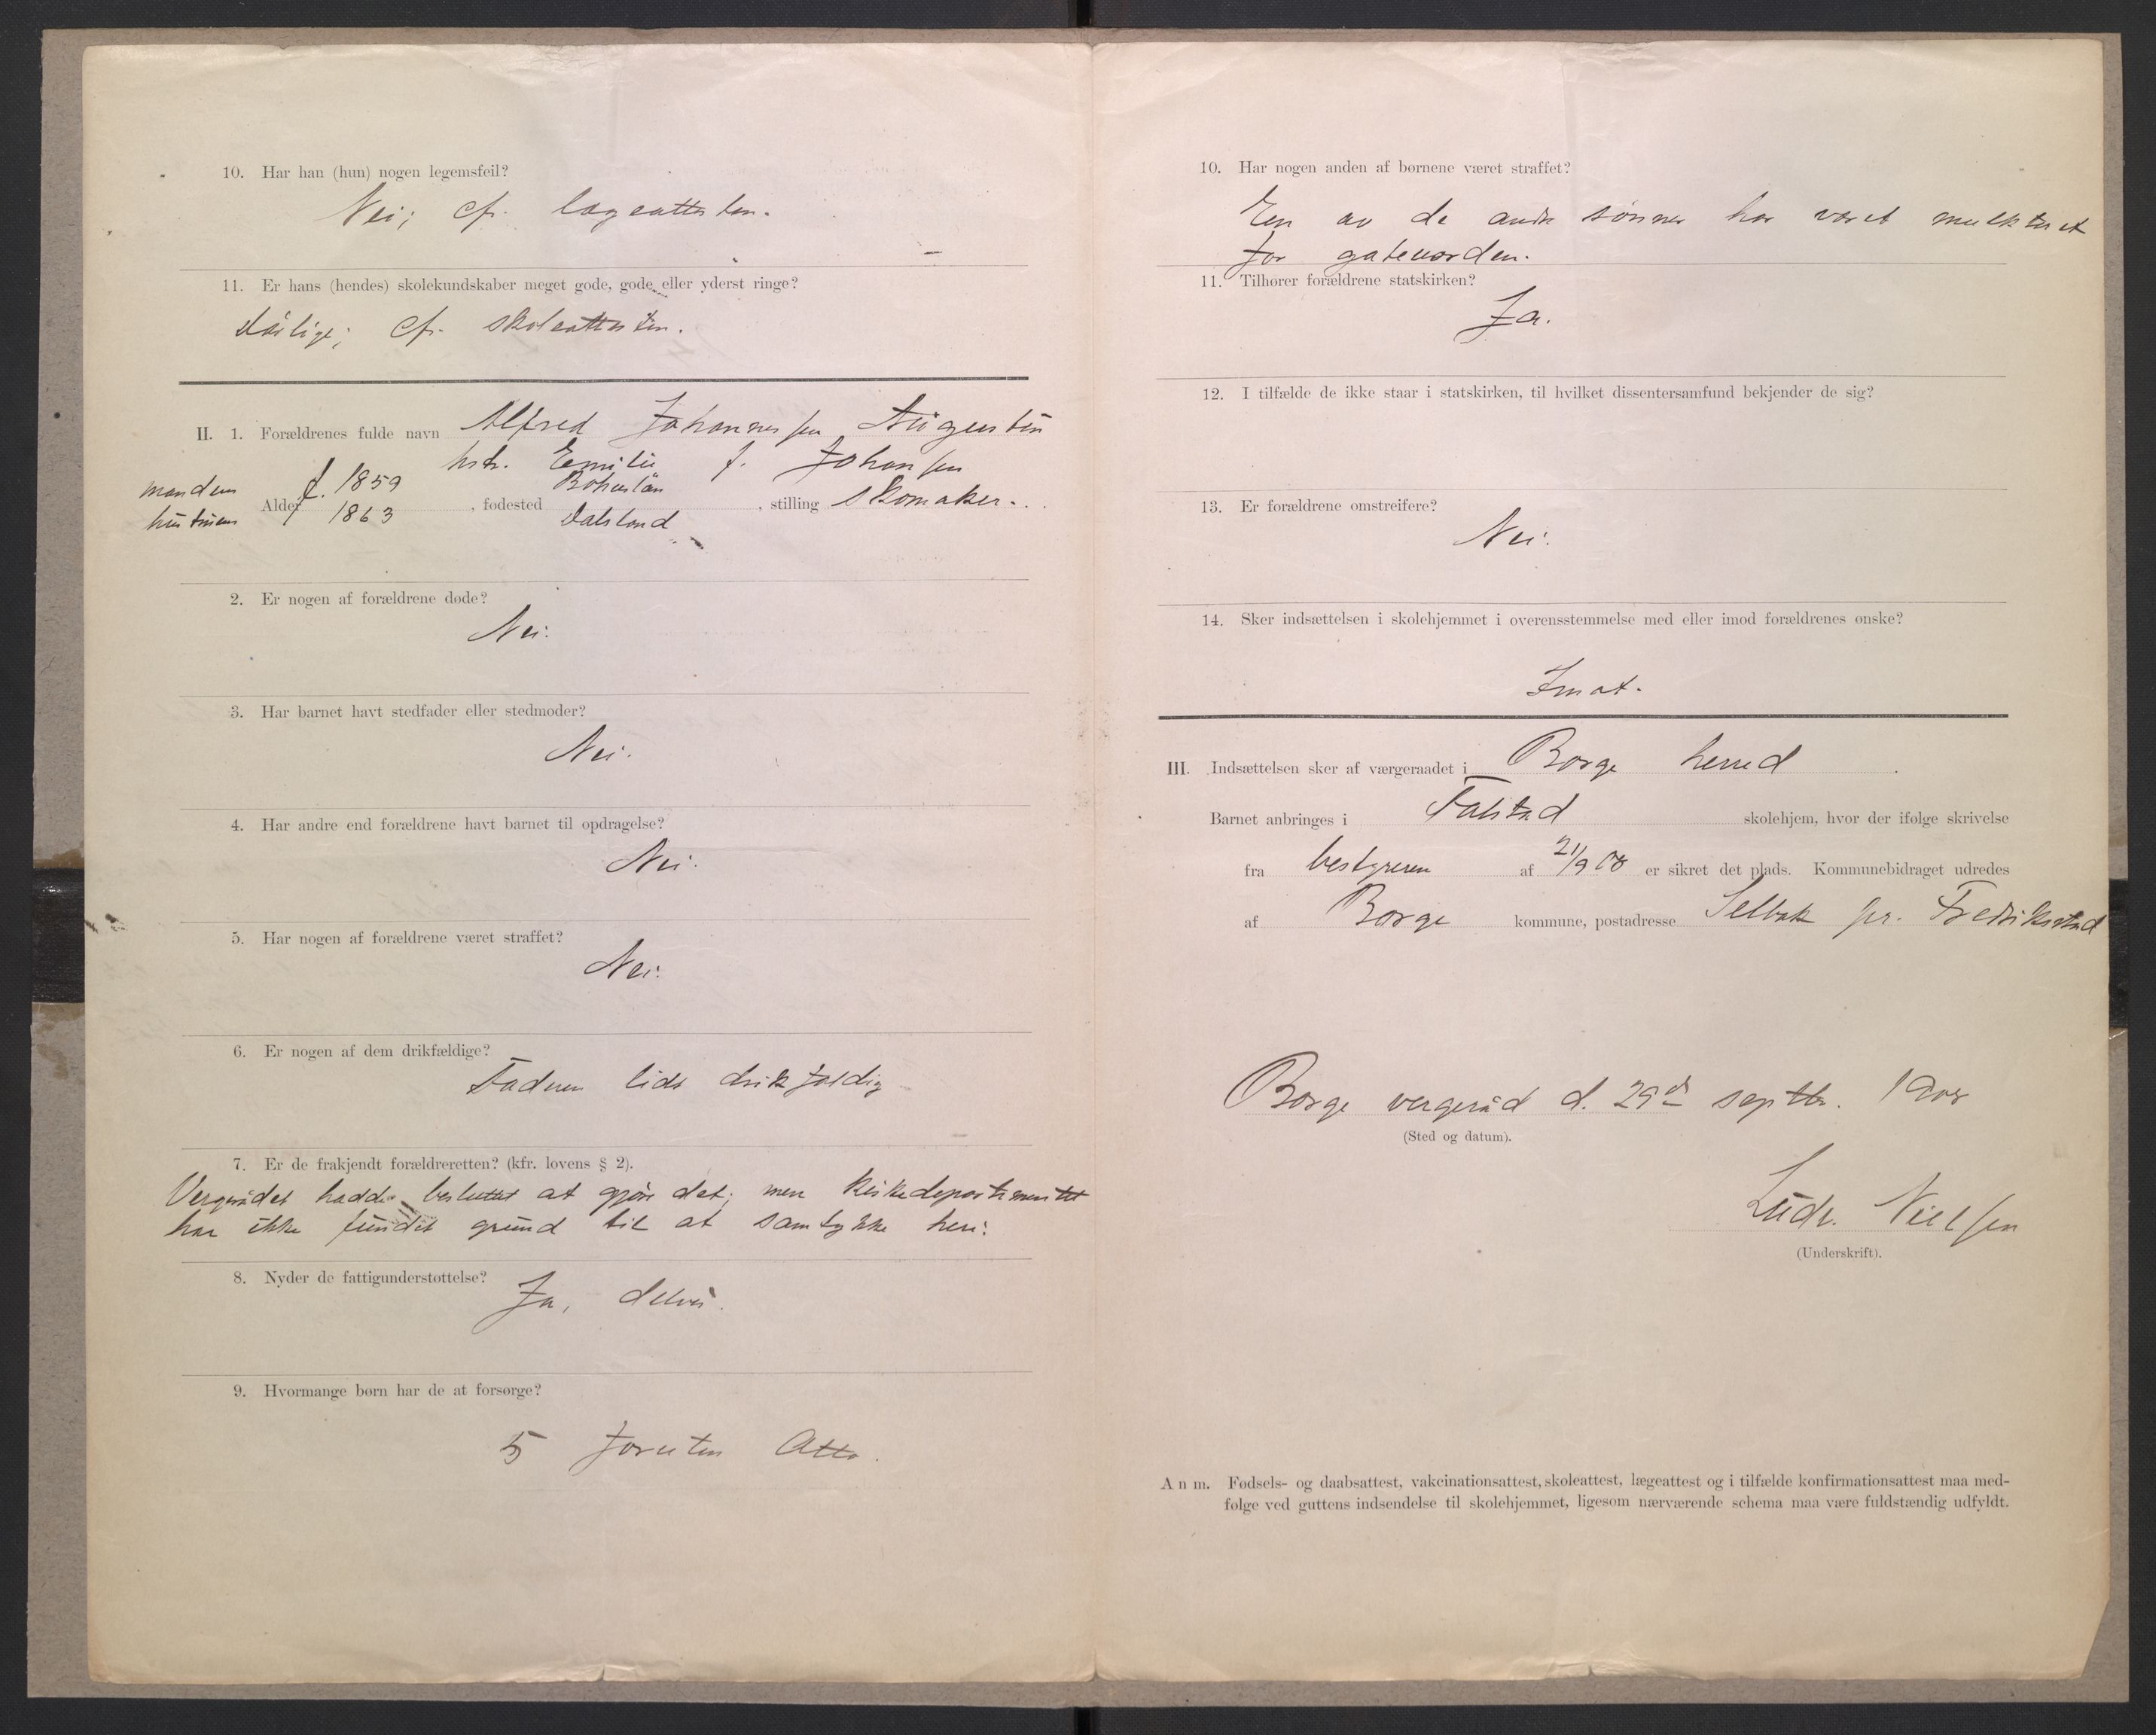 10. Har han (hun) nogen legemsfeil?
Nei; cfr. lægeattesten.
11. Er hans (hendes) skolekundskaber meget gode, gode eller yderst ringe?
dårlige; cfr. skoleattesten.
II. 1. Forældrenes fulde navn Alfred Johannessen Augustin
hstr. Emilie f. Johansen
manden f. 1859 Bohuslän
Alder , fødested , stilling skomaker.
hustruen 1863 Dalsland
2. Er nogen af forældrene døde?
Nei.
3. Har barnet havt stedfader eller stedmoder?
Nei.
4. Har andre end forældrene havt barnet til opdragelse?
Nei.
5. Har nogen af forældrene været straffet?
Nei.
6. Er nogen af dem drikfældige?
Faderen lidt drikfældig
7. Er de frakjendt forældreretten? (kfr. lovens § 2).
Vergerådet hadde besluttet at gjøre det; men kirkedepartementet
har ikke fundet grund til at samtykke heri.
8. Nyder de fattigunderstøttelse?
Ja, delvis.
9. Hvormange børn har de at forsørge?
5 foruten Otto.
10. Har nogen anden af børnene været straffet?
En av de andre sønner har været mulkteret
for gateuorden.
11. Tilhører forældrene statskirken?
Ja.
12. I tilfælde de ikke staar i statskirken, til hvilket dissentersamfund bekjender de sig?
13. Er forældrene omstreifere?
Nei.
14. Sker indsættelsen i skolehjemmet i overensstemmelse med eller imod forældrenes ønske?
Imot.
III. Indsættelsen sker af værgeraadet i Borge herred .
Barnet anbringes i Falstad skolehjem, hvor der ifølge skrivelse
fra bestyreren af 21/9 08 er sikret det plads. Kommunebidraget udredes
af Borge kommune, postadresse Selbak pr. Fredriksstad
Borge vergeråd d. 29de septbr. 1908
(Sted og datum).
Ludv. Nielsen
(Underskrift).
Anm. Fødsels- og daabsattest, vakcinationsattest, skoleattest, lægeattest og i tilfælde konfirmationsattest maa med-
følge ved guttens indsendelse til skolehjemmet, ligesom nærværende schema maa være fuldstændig udfyldt.